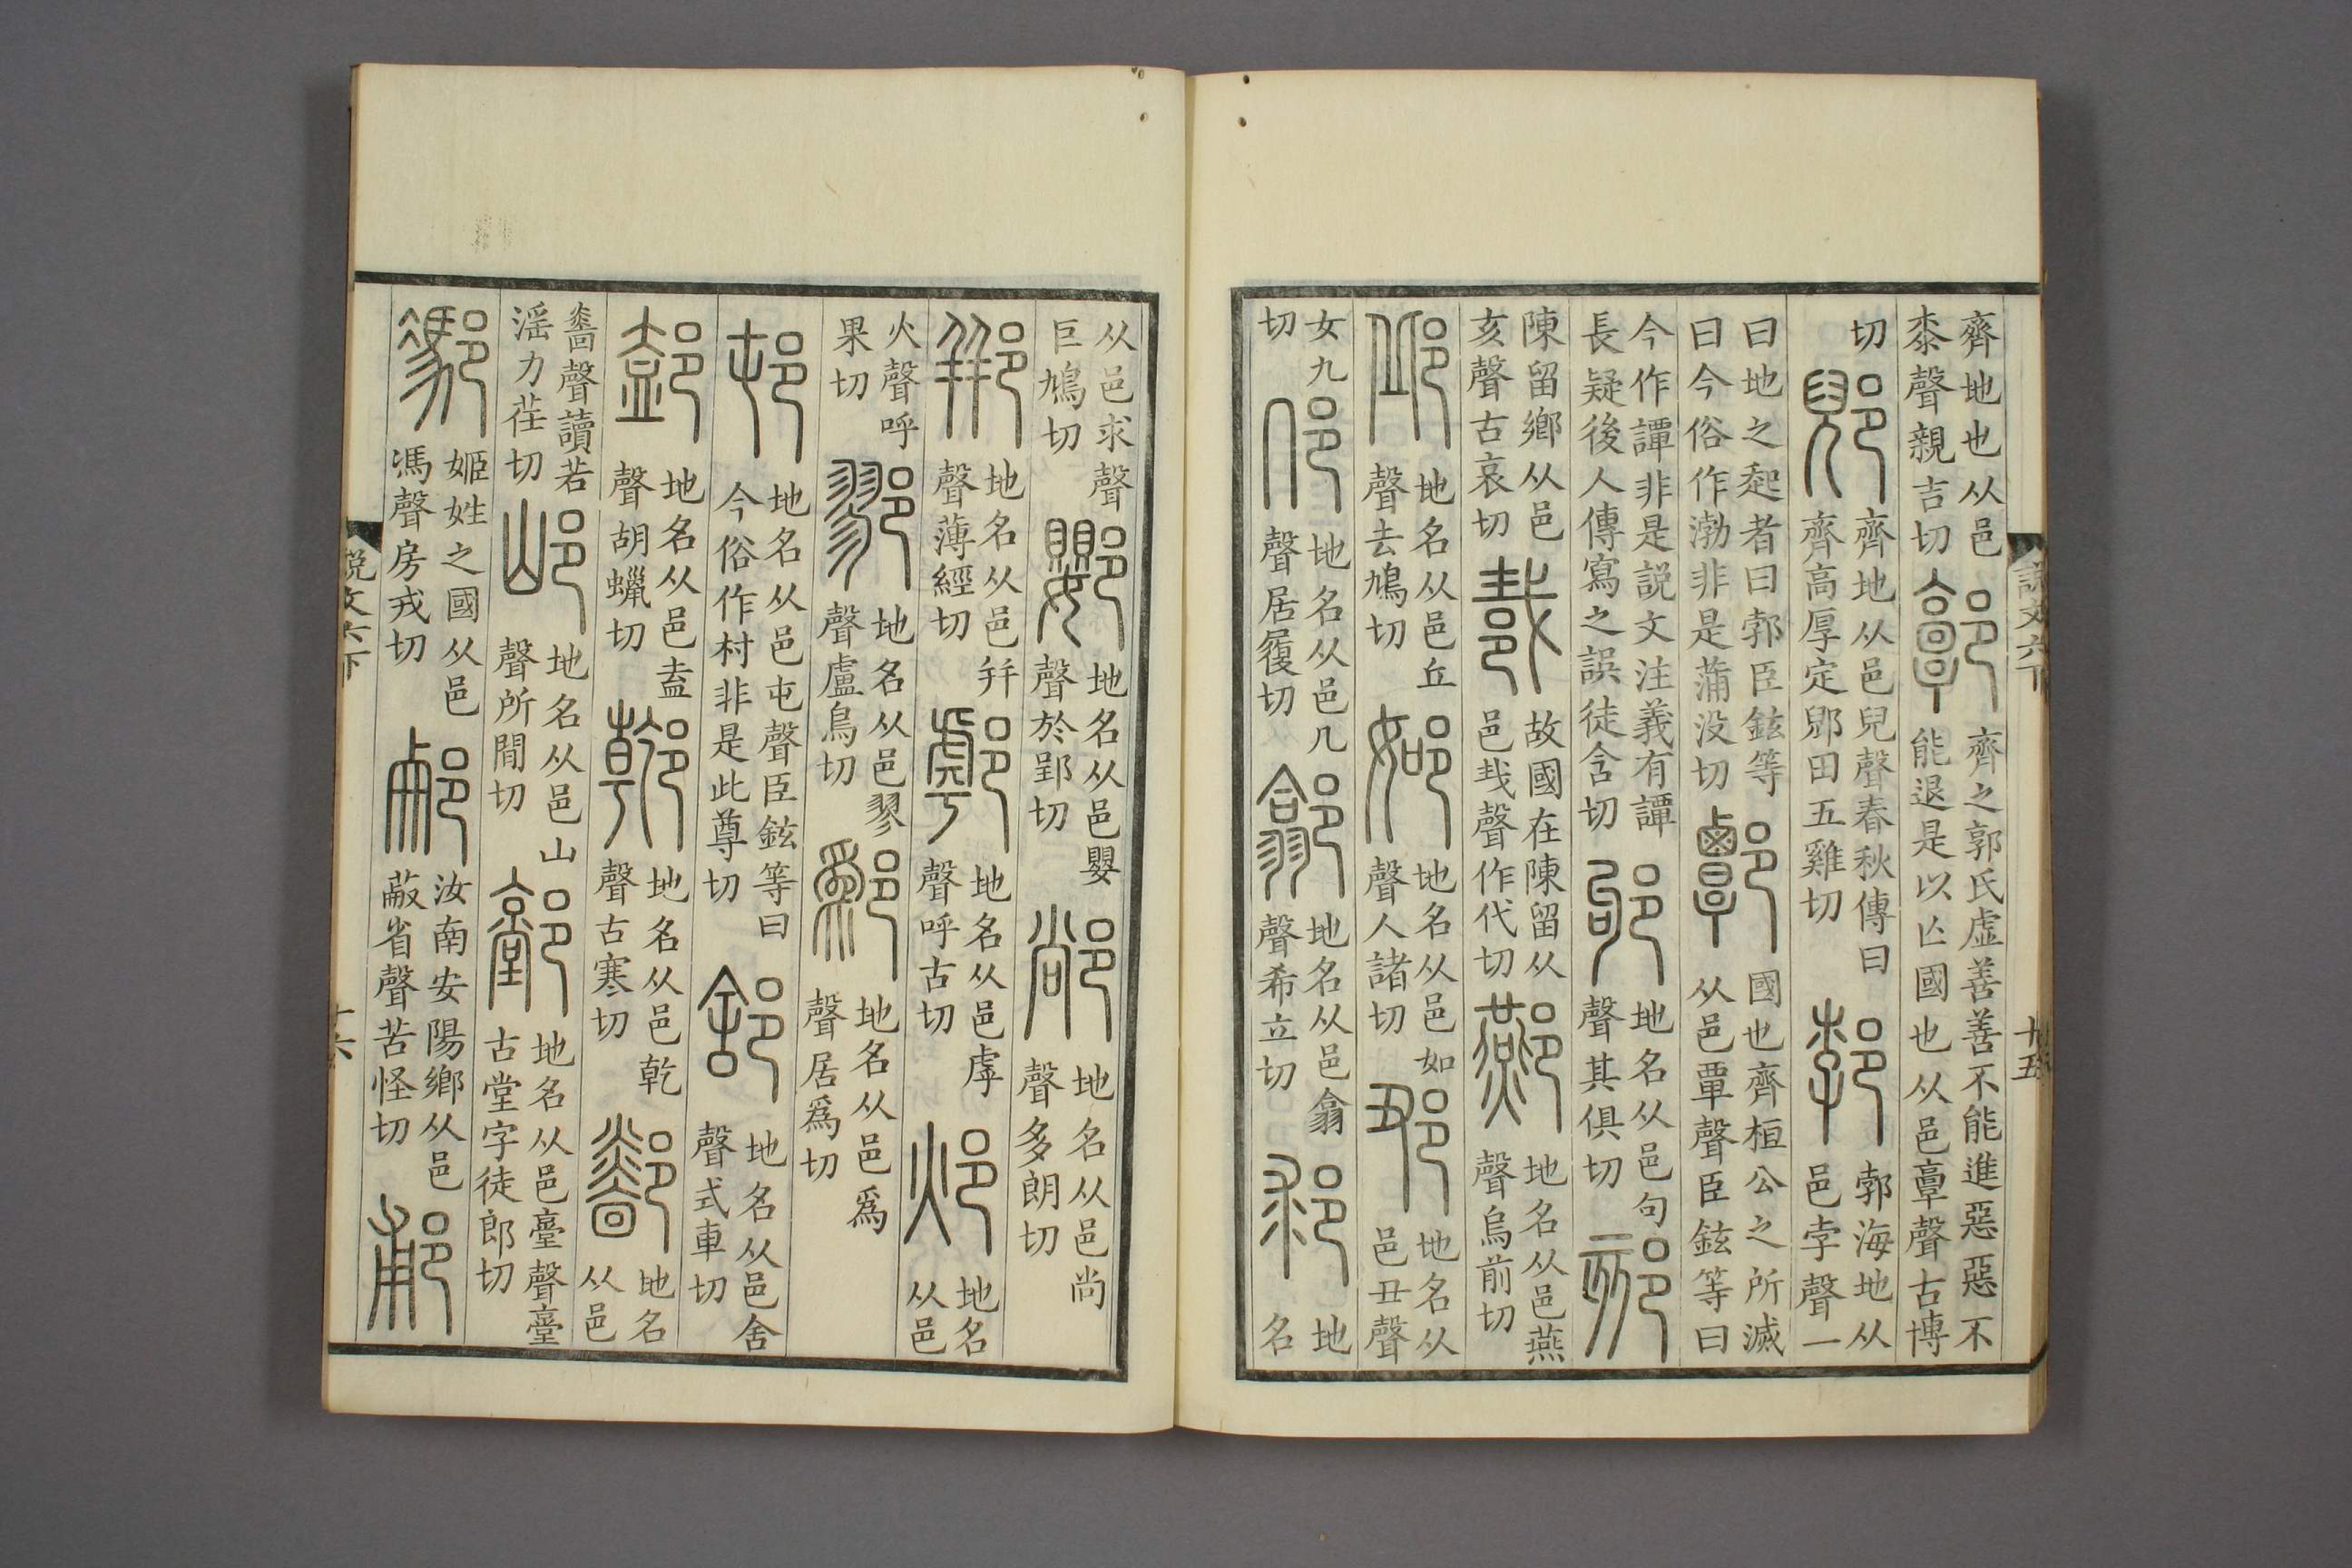 説文六下
十五
齊地也从邑桼聲親吉切 郭 齊之郭氏虛善善不能進惡惡不能退是以亾國也从邑𩫏聲古博
切 郳 齊地从邑兒聲春秋傳曰齊高厚定郳田五雞切 郣 郣海地从邑孛聲一
曰地之起者曰郣臣鉉等曰今俗作渤非是蒲没切 鄿 國也齊桓公之所滅从邑覃聲臣鉉等曰
今作譚非是説文注義有譚長疑後人傳寫之誤徒含切 地名从邑句聲其俱切 郂
陳留鄉从邑亥聲古哀切 故國在陳留从邑𢦏聲作代切 酀 地名从邑燕聲烏前切
邱 地名从邑丘聲去鳩切 地名从邑如聲人諸切 地名从邑丑聲
女九切 地名从邑几聲居履切 地名从邑翕聲希立切 地名
从邑求聲巨鳩切 地名从邑嬰聲於郢切 地名从邑尚聲多朗切
郱 地名从邑幷聲薄經切 地名从邑虖聲呼古切 地名从邑
火聲呼果切 鄝 地名从邑翏聲盧鳥切 鄬 地名从邑爲聲居爲切
邨 地名从邑屯聲臣鉉等曰今俗作村非是此尊切 地名从邑舍聲式車切
地名从邑盍聲胡蠟切 地名从邑乾聲古寒切 地名从邑
聲讀若淫力荏切 地名从邑山聲所閒切 地名从邑臺聲臺古堂字徒郎切
姬姓之國从邑馮聲房戎切 汝南安陽鄉从邑蔽省聲苦怪切 郙
説文六下
十六